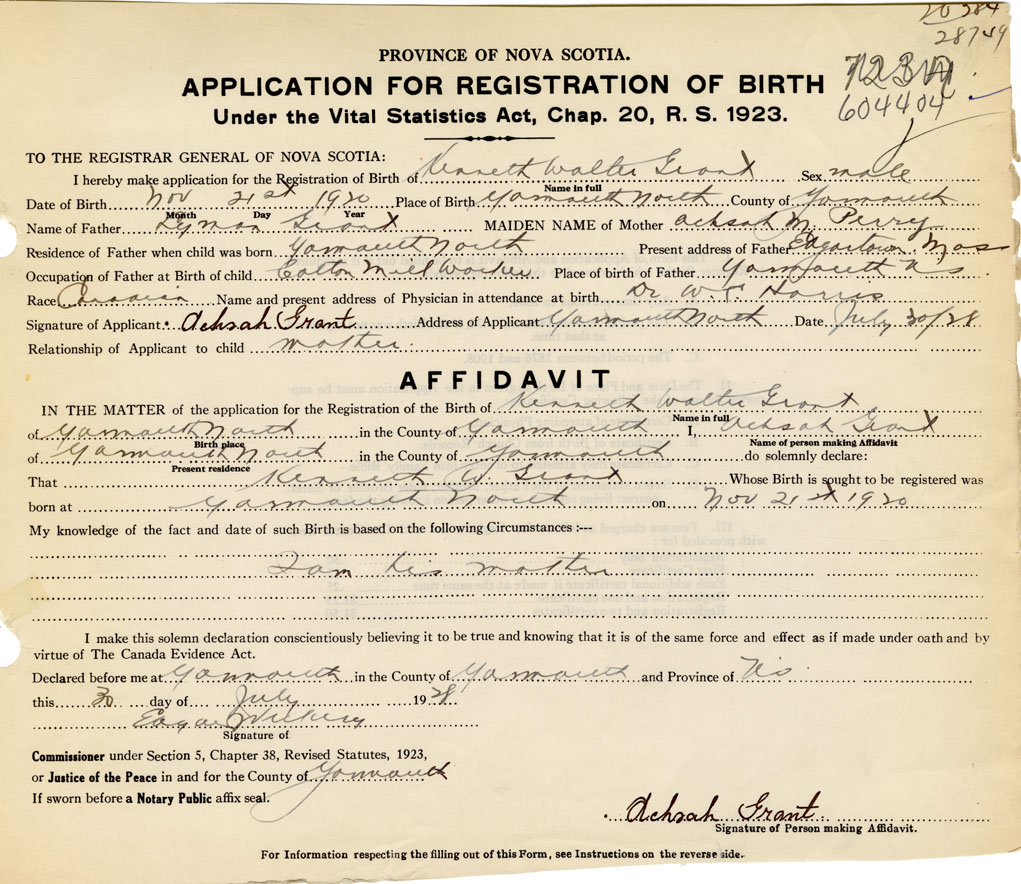 20 284
28749
PROVINCE OF NOVA SCOTIA.
APPLICATION FOR REGISTRATION OF BIRTH
Under the Vital Statistics Act, Chap. 20, R. S. 1923.
604404
TO THE REGISTRAR GENERAL OF NOVA SCOTIA:
I hereby make application for the Registration of Birth of Kenneth Walter Grant Sex male
Name in full
Date of Birth Nov 21st 1920 Place of Birth Yarmouth North County of Yarmouth
Month Day Year
Name of Father Lyman Grant MAIDEN NAME of Mother Achsah M. Perry
Residence of Father when child was born Yarmouth North Present address of Father Edgartown, Mass
Occupation of Father at Birth of child Cotton Mill Worker Place of birth of Father Yarmouth N S
Race Canadian Name and present address of Physician in attendance at birth Dr W. T. Harris
Signature of Applicant Achsah Grant Address of Applicant Yarmouth North Date July 30/28
Relationship of Applicant to child mother
AFFIDAVIT
IN THE MATTER of the application for the Registration of the Birth of Kenneth Walter Grant
Name in full
of Yarmouth North in the County of Yarmouth I, Achsah Grant
Birth place Name of person making Affidavit
of Yarmouth North in the County of Yarmouth do solemnly declare:
Present residence
That Kenneth W. Grant Whose Birth is sought to be registered was
born at Yarmouth North on Nov 21st 1920
My knowledge of the fact and date of such Birth is based on the following Circumstances :---
I am his mother
I make this solemn declaration conscientiously believing it to be true and knowing that it is of the same force and effect as if made under oath and by
virtue of The Canada Evidence Act.
Declared before me at Yarmouth in the County of Yarmouth and Province of N.S.
this 30 day of July 1928
Edgar
Signature of
Commissioner under Section 5, Chapter 38, Revised Statutes, 1923,
or Justice of the Peace in and for the County of Yarmouth
If sworn before a Notary Public affix seal.
Achsah Grant
Signature of Person making Affidavit.
For Information respecting the filling out of this Form, see Instructions on the reverse side.